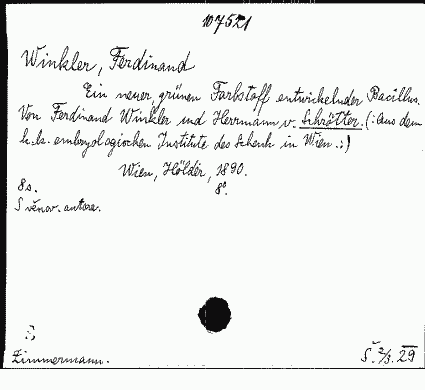 107521
Winkler, Ferdinand
Ein neuer, grünen Farbstoff entwickelnder Bacillus.
Von Ferdinand Winkler und Herrmann v. Schrötter. (:Aus dem
k.k. embryologischen Institute des Schenk in Wien.:)
Wien, Hölder, 1890.
8s. 8°
S věnov. autora.
Zimmermann. Š. 2/3. 29